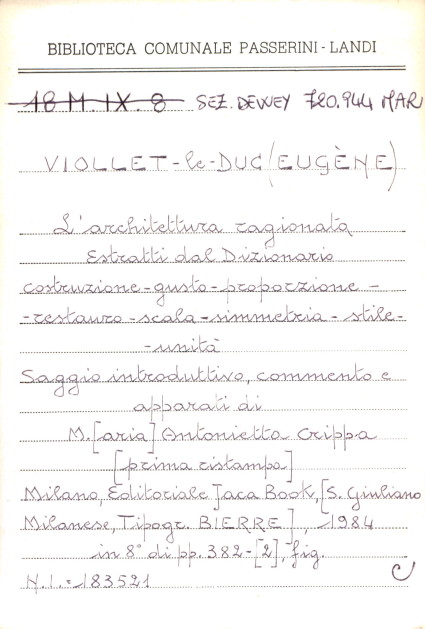 BIBLIOTECA COMUNALE PASSERINI - LANDI
18 M. IX. 8 SEZ. DEWEY 720.944 MAR
VIOLLET-le-DUC (EUGÈNE)
L'architettura ragionata
Estratti dal Dizionario
costruzione-gusto-proporzione-
-restauro-scala-simmetria-stile-
-unità
Saggio introduttivo, commento e
apparati di
M.[aria] Antonietta Crippa
[prima ristampa]
Milano, Editoriale Jaca Book, [S. Giuliano
Milanese, Tipogr. BIERRE], 1984
in 8° di pp. 382-[2], fig.
N.I. = 183521